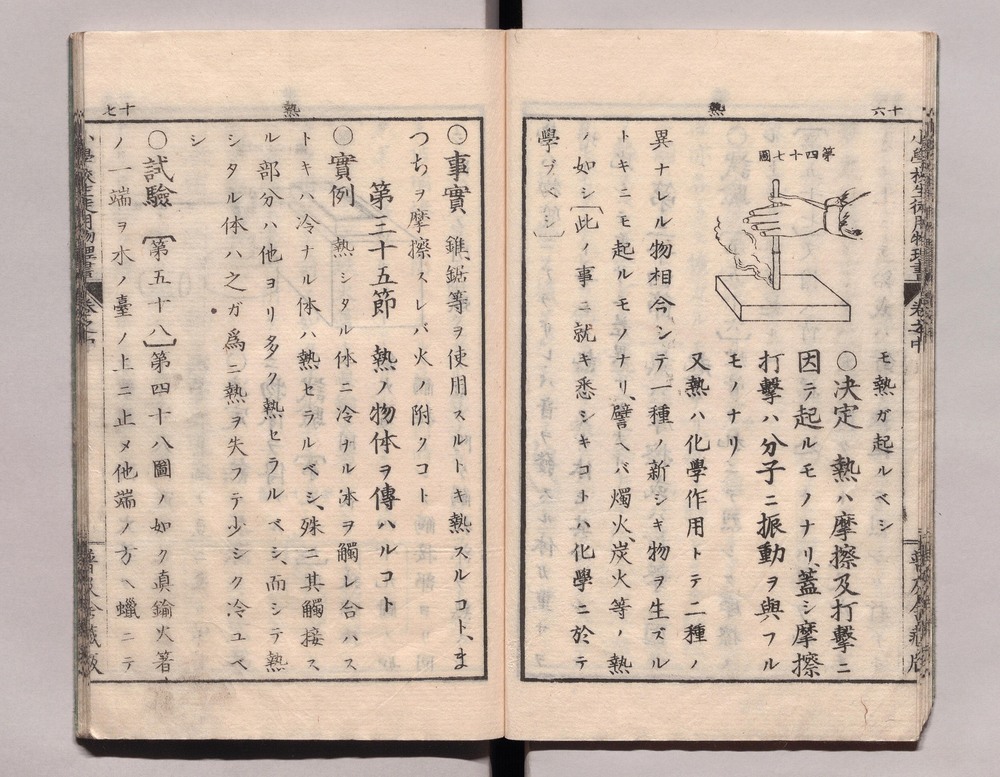 十六
熱
小學校生徒用物理書
卷之中
第四十七圖
モ熱ガ起ルベシ
〇决定 熱ハ摩擦及打擊ニ
因テ起ルモノナリ、蓋シ摩擦
打擊ハ分子ニ振動ヲ與フル
モノナリ
又熱ハ化學作用トテ二種ノ
異ナレル物相合シテ一種ノ新シキ物ヲ生ズル
トキニモ起ルモノナリ、譬ヘバ燭火、炭火等ノ熱
ノ如シ[此ノ事ニ就キ悉シキコトハ化學ニ於テ
學ブベシ]
十七
熱
〇事實 錐、鋸等ヲ使用スルトキ熱スルコト、ま
つちヲ摩擦スレバ火ノ附クコト
第三十五節 熱ノ物体ヲ傳ハルコト
〇實例 熱シタル体ニ冷ナル体ヲ觸レ合ハス
トキハ冷ナル体ハ熱セラルベシ、殊ニ其觸接ス
ル部分ハ他ヨリ多ク熱セラルベシ、而シテ熱
シタル体ハ之ガ爲ニ熱ヲ失フテ少シク冷ユベ
シ
〇試驗 [第五十八]第四十八圖ノ如ク眞鍮火箸
ノ一端ヲ水ノ臺ノ上ニ止メ他端ノ方ヘ蠟ニテ
小學校生徒用物理書
卷之中